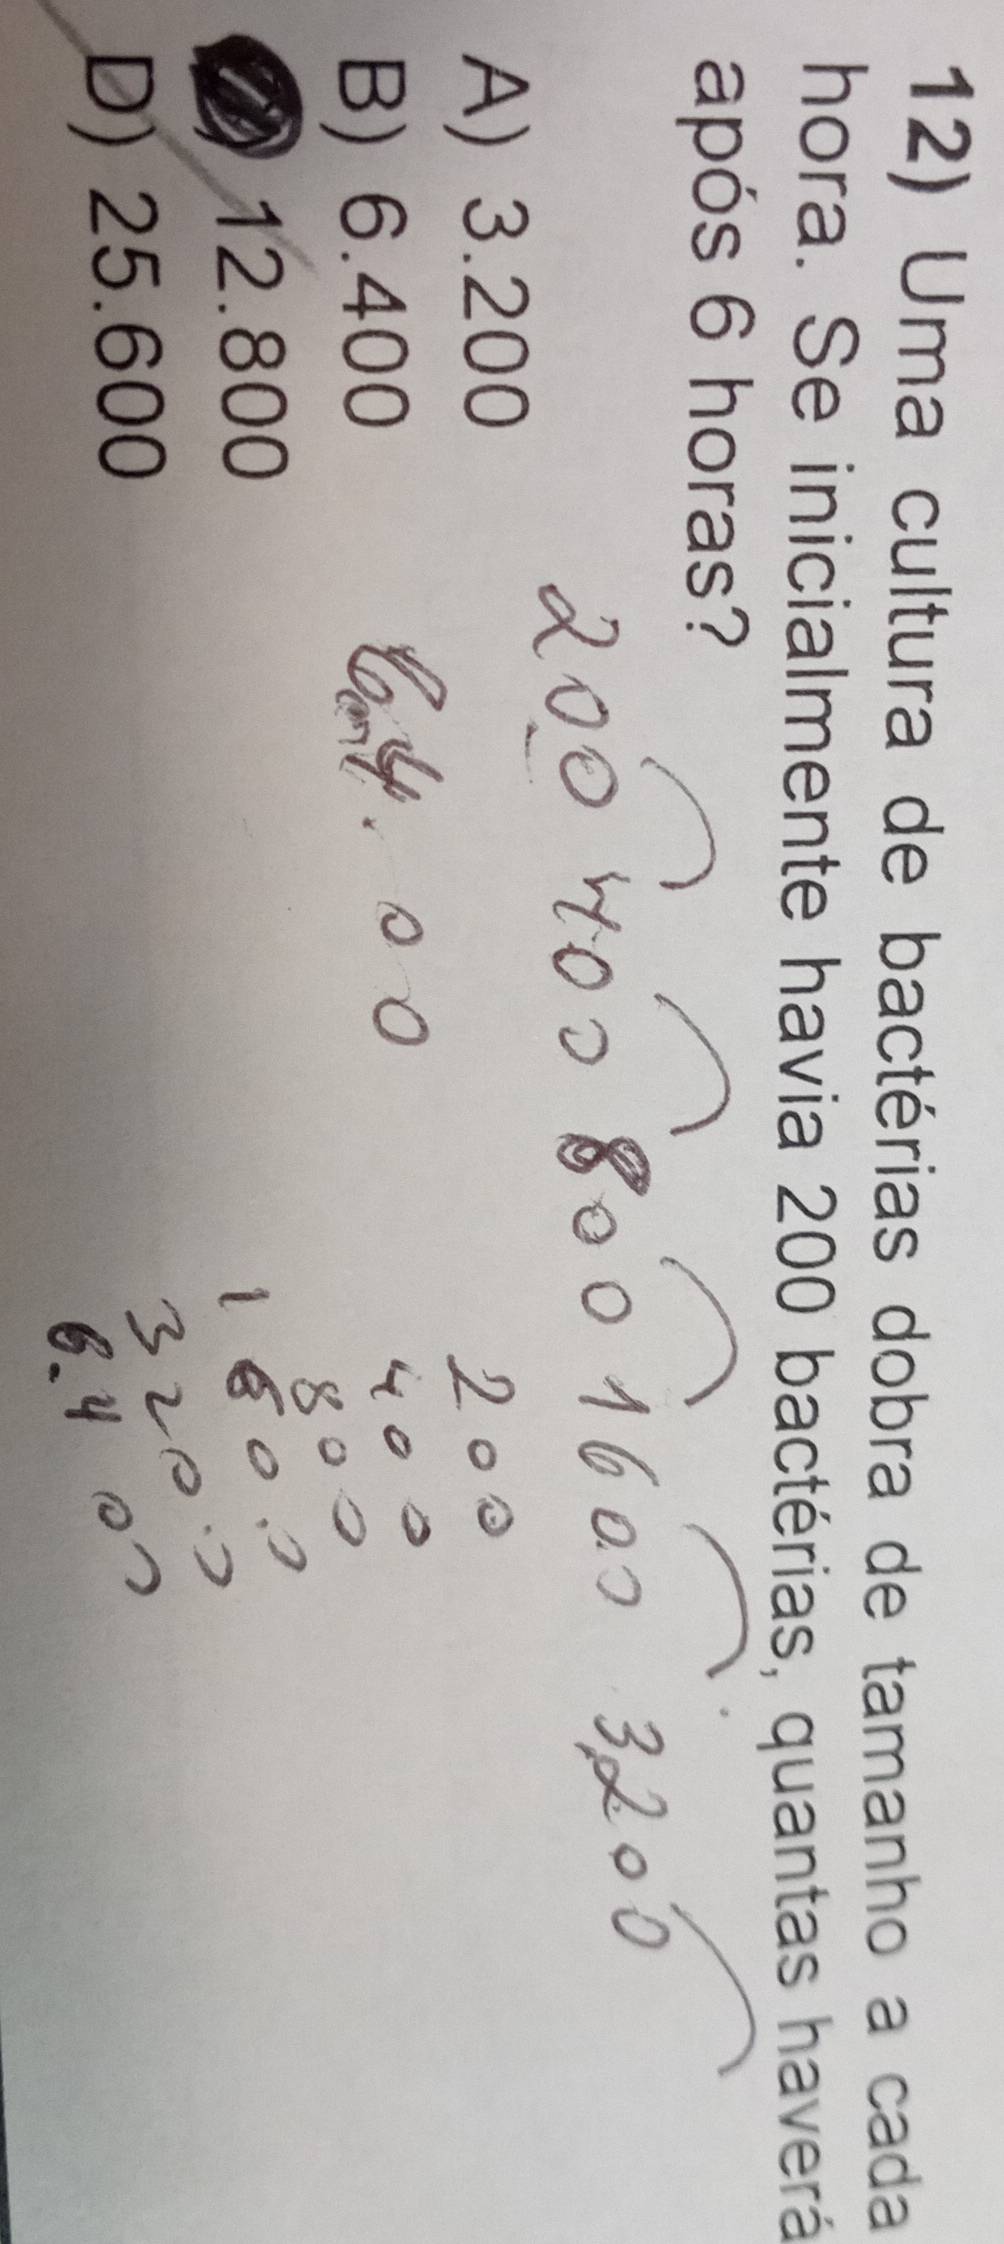 12) Uma cultura de bactérias dobra de tamanho a cada
hora. Se inicialmente havia 200 bactérias, quantas haverá
após 6 horas?
A) 3.200
B) 6.400
12.800
D) 25.600
200 400 800 1600 3200
64.00
200
400
800
1600
3200
6.400